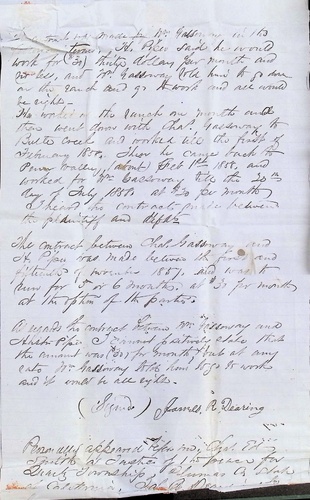 contract was made Wm Gassoway in the
terms, H. Piser said he would
work for (30) thirty dollars per month and
no less, and Wm Gassoway told him to go down
on the ranch and go to work and all would
be right.
He worked on the ranch one month and
then went down with Chat. Gassoway to
Butte Creek and worked till the first of
February 1858. Then he came back to
about Feb 1st 1858, and
worked for Wm Gassoway till the 20th
day of July 1858 at $30 per month
I heard the contract made between
the plaintiff and defts
The contract between Chat Gassoway and
H. Piser was made between the first and
fifteenth of november 1857, and was to
run for 5 or 6 months, at $30 per month
at the option of the parties.
As regards the contract between Wm Gassoway and
Piser I cannot positively state that
the amount was ($30) per month, but at any
rate Wm Gassoway told him to go to work
and it would be all right.
(Signed) James R Dearing
Personally appeared before me,
a Justice of the Peace for
Township
California, James R Dearing